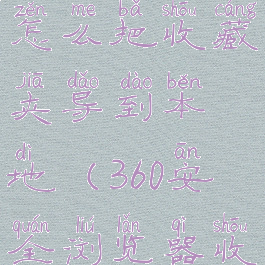 zěn me bǎ shōu cáng
怎么把收藏
jiā dǎo dào běn
夹导到本
dì ān
地（360安
quán liú lǎn qì shōu
全浏览器收